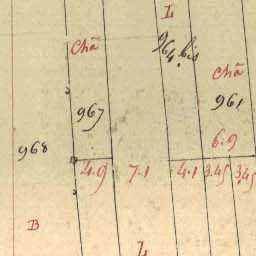 L
Chã
964 bis
Chã
961
967
6.9
968
4.9 7.1 4.1 3.45 3.45
B
L